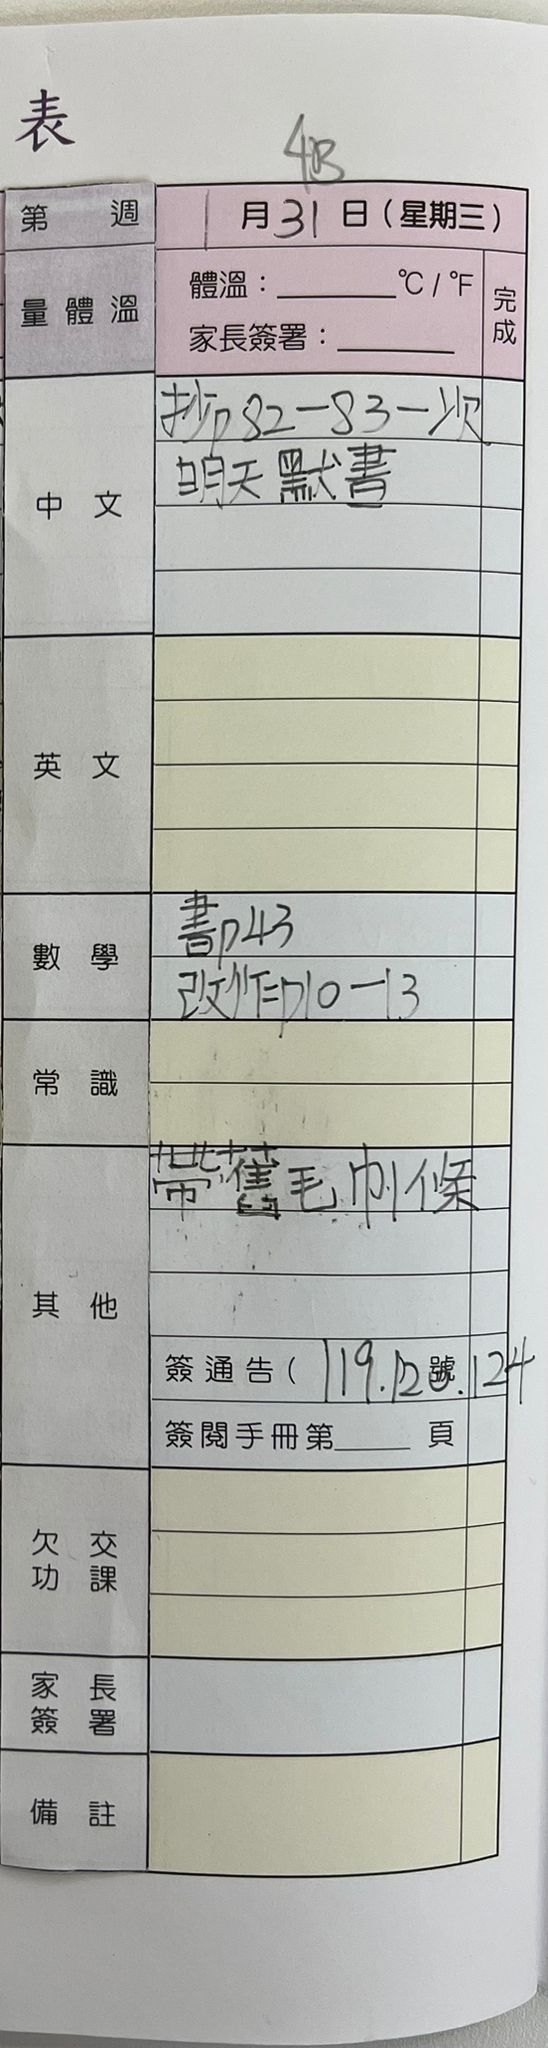 表
4B
第 週 1月31日(星期三)
量體溫 體溫：______°C/°F 完成
家長簽署：______
中文 抄p82-83一次
明天默書
英文
數學 書p43
改作p10-13
常識
其他 帶舊毛巾條
簽通告( 119.12號.124
簽閱手冊第____頁
欠交功課
家長簽署
備註